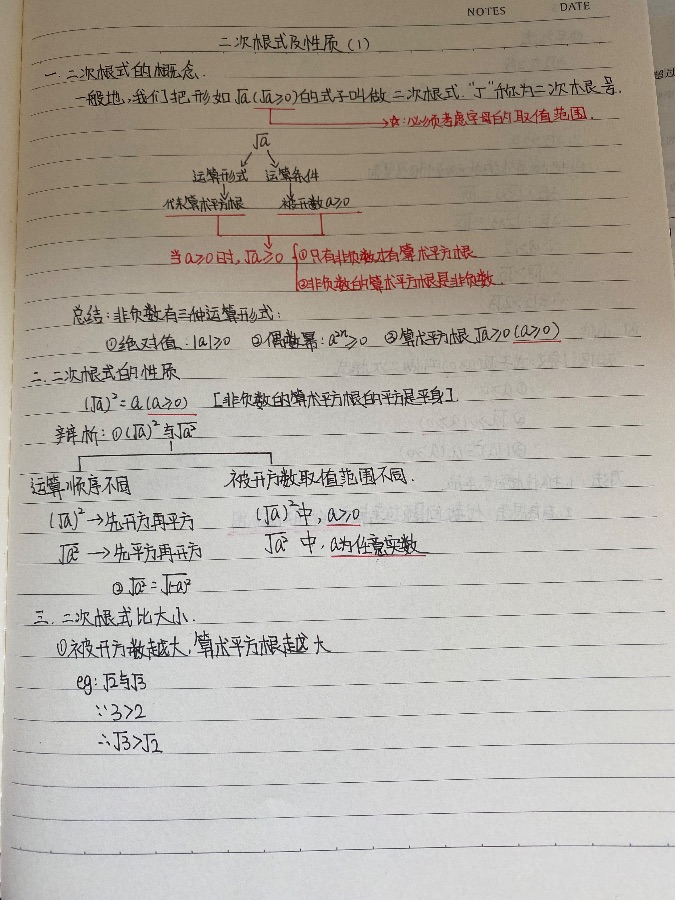 NOTES DATE
二次根式及性质(1)
一.二次根式的概念.
一般地,我们把形如√a(√a≥0)的式子叫做二次根式."√"称为二次根号.
☆:必须考虑字母的取值范围.
√a
运算形式 运算条件
代表算术平方根 被开数a≥0
当a≥0时,√a≥0 ①只有非负数才有算术平方根
②非负数的算术平方根是非负数.
总结:非负数有三种运算形式:
①绝对值:|a|≥0 ②偶数幂:a²ⁿ≥0 ③算术平方根√a≥0(a≥0)
二.二次根式的性质
(√a)²=a(a≥0) [非负数的算术平方根的平方是平身].
辨析:①(√a)²与√a²
运算顺序不同 被开方数取值范围不同.
(√a)²→先开方再平方 (√a)²中,a≥0
√a²→先平方再开方 √a²中,a为任意实数
②√a²=√(-a)²
三.二次根式比大小.
①被开方数越大,算术平方根越大
eg:√2与√3
∵3>2
∴√3>√2